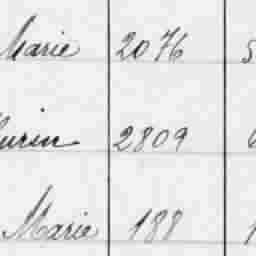 Marie 2076 5
urin 2809
Marie 188 1